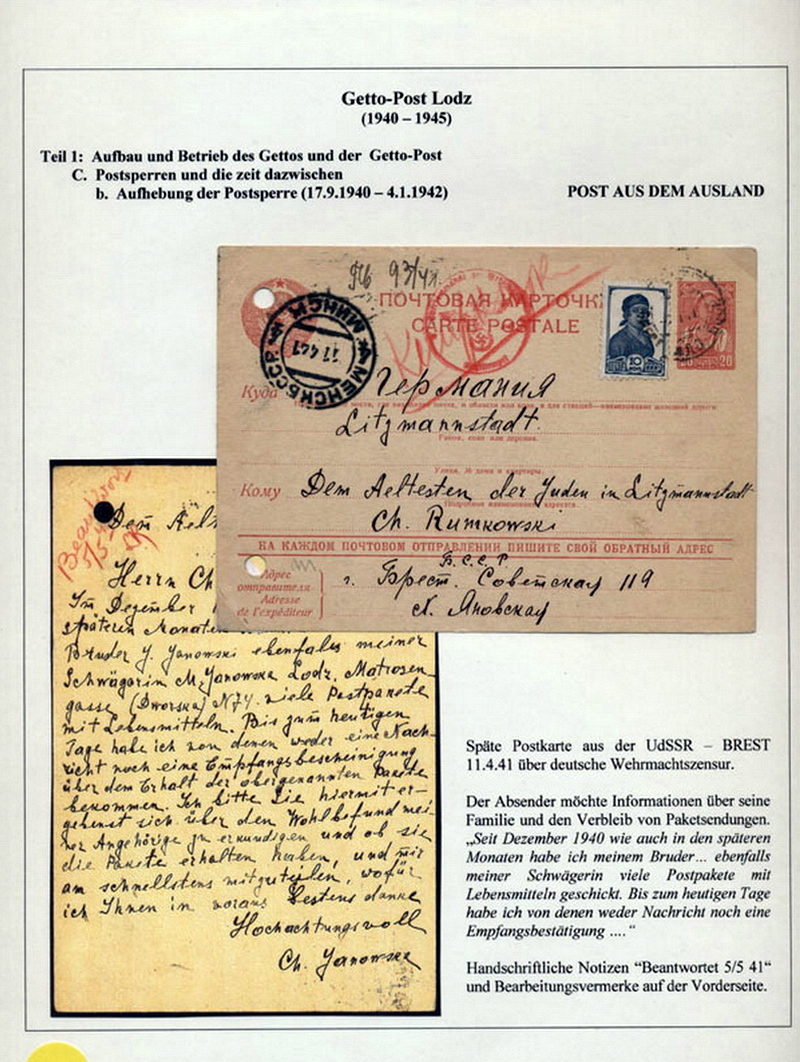 Getto-Post Lodz
(1940 – 1945)
Teil 1: Aufbau und Betrieb des Gettos und der Getto-Post
C. Postsperren und die zeit dazwischen
b. Aufhebung der Postsperre (17.9.1940 – 4.1.1942)
POST AUS DEM AUSLAND
93/41
ПОЧТОВАЯ КАРТОЧК
CARTE POSTALE
МИНСК
МЕНСК БССР
10
20
Куда Германия
Litzmannstadt.
Кому Dem Aeltesten der Juden in Litzmannstadt
Ch. Rumkowski
НА КАЖДОМ ПОЧТОВОМ ОТПРАВЛЕНИИ ПИШИТЕ СВОЙ ОБРАТНЫЙ АДРЕС
Б.С.С.Р
Адрес
отправителя
Adresse
de l'expéditeur
г. Брест. Советская 119
Яновская
5/5
Dem Aelt
Herrn Ch
Im Dezember
späteren Monaten
Bruder J. Janowski ebenfals meiner
Schwägerin M. Janowska Lodz, Matrosen-
gasse (Dworska) N74 viele Postpakete
mit Lebensmitteln. Bis zum heutigen
Tage habe ich von denen weder eine Nach-
richt noch eine Empfangsbescheinigung
über dem Erhalt der obergenannten Pakete
bekommen. Ich bitte Sie hiermit er-
gebenst sich über den Wohlbefund mei-
ner Angehörige zu erkundigen und ob sie
die Pakete erhalten haben, und mir
am schnellstens mitzuteilen, wofür
ich Ihnen in voraus bestens danke
Hochachtungsvoll
Ch. Janowska
Späte Postkarte aus der UdSSR – BREST
11.4.41 über deutsche Wehrmachtszensur.
Der Absender möchte Informationen über seine
Familie und den Verbleib von Paketsendungen.
„Seit Dezember 1940 wie auch in den späteren
Monaten habe ich meinem Bruder... ebenfalls
meiner Schwägerin viele Postpakete mit
Lebensmitteln geschickt. Bis zum heutigen Tage
habe ich von denen weder Nachricht noch eine
Empfangsbestätigung ...."
Handschriftliche Notizen "Beantwortet 5/5 41"
und Bearbeitungsvermerke auf der Vorderseite.